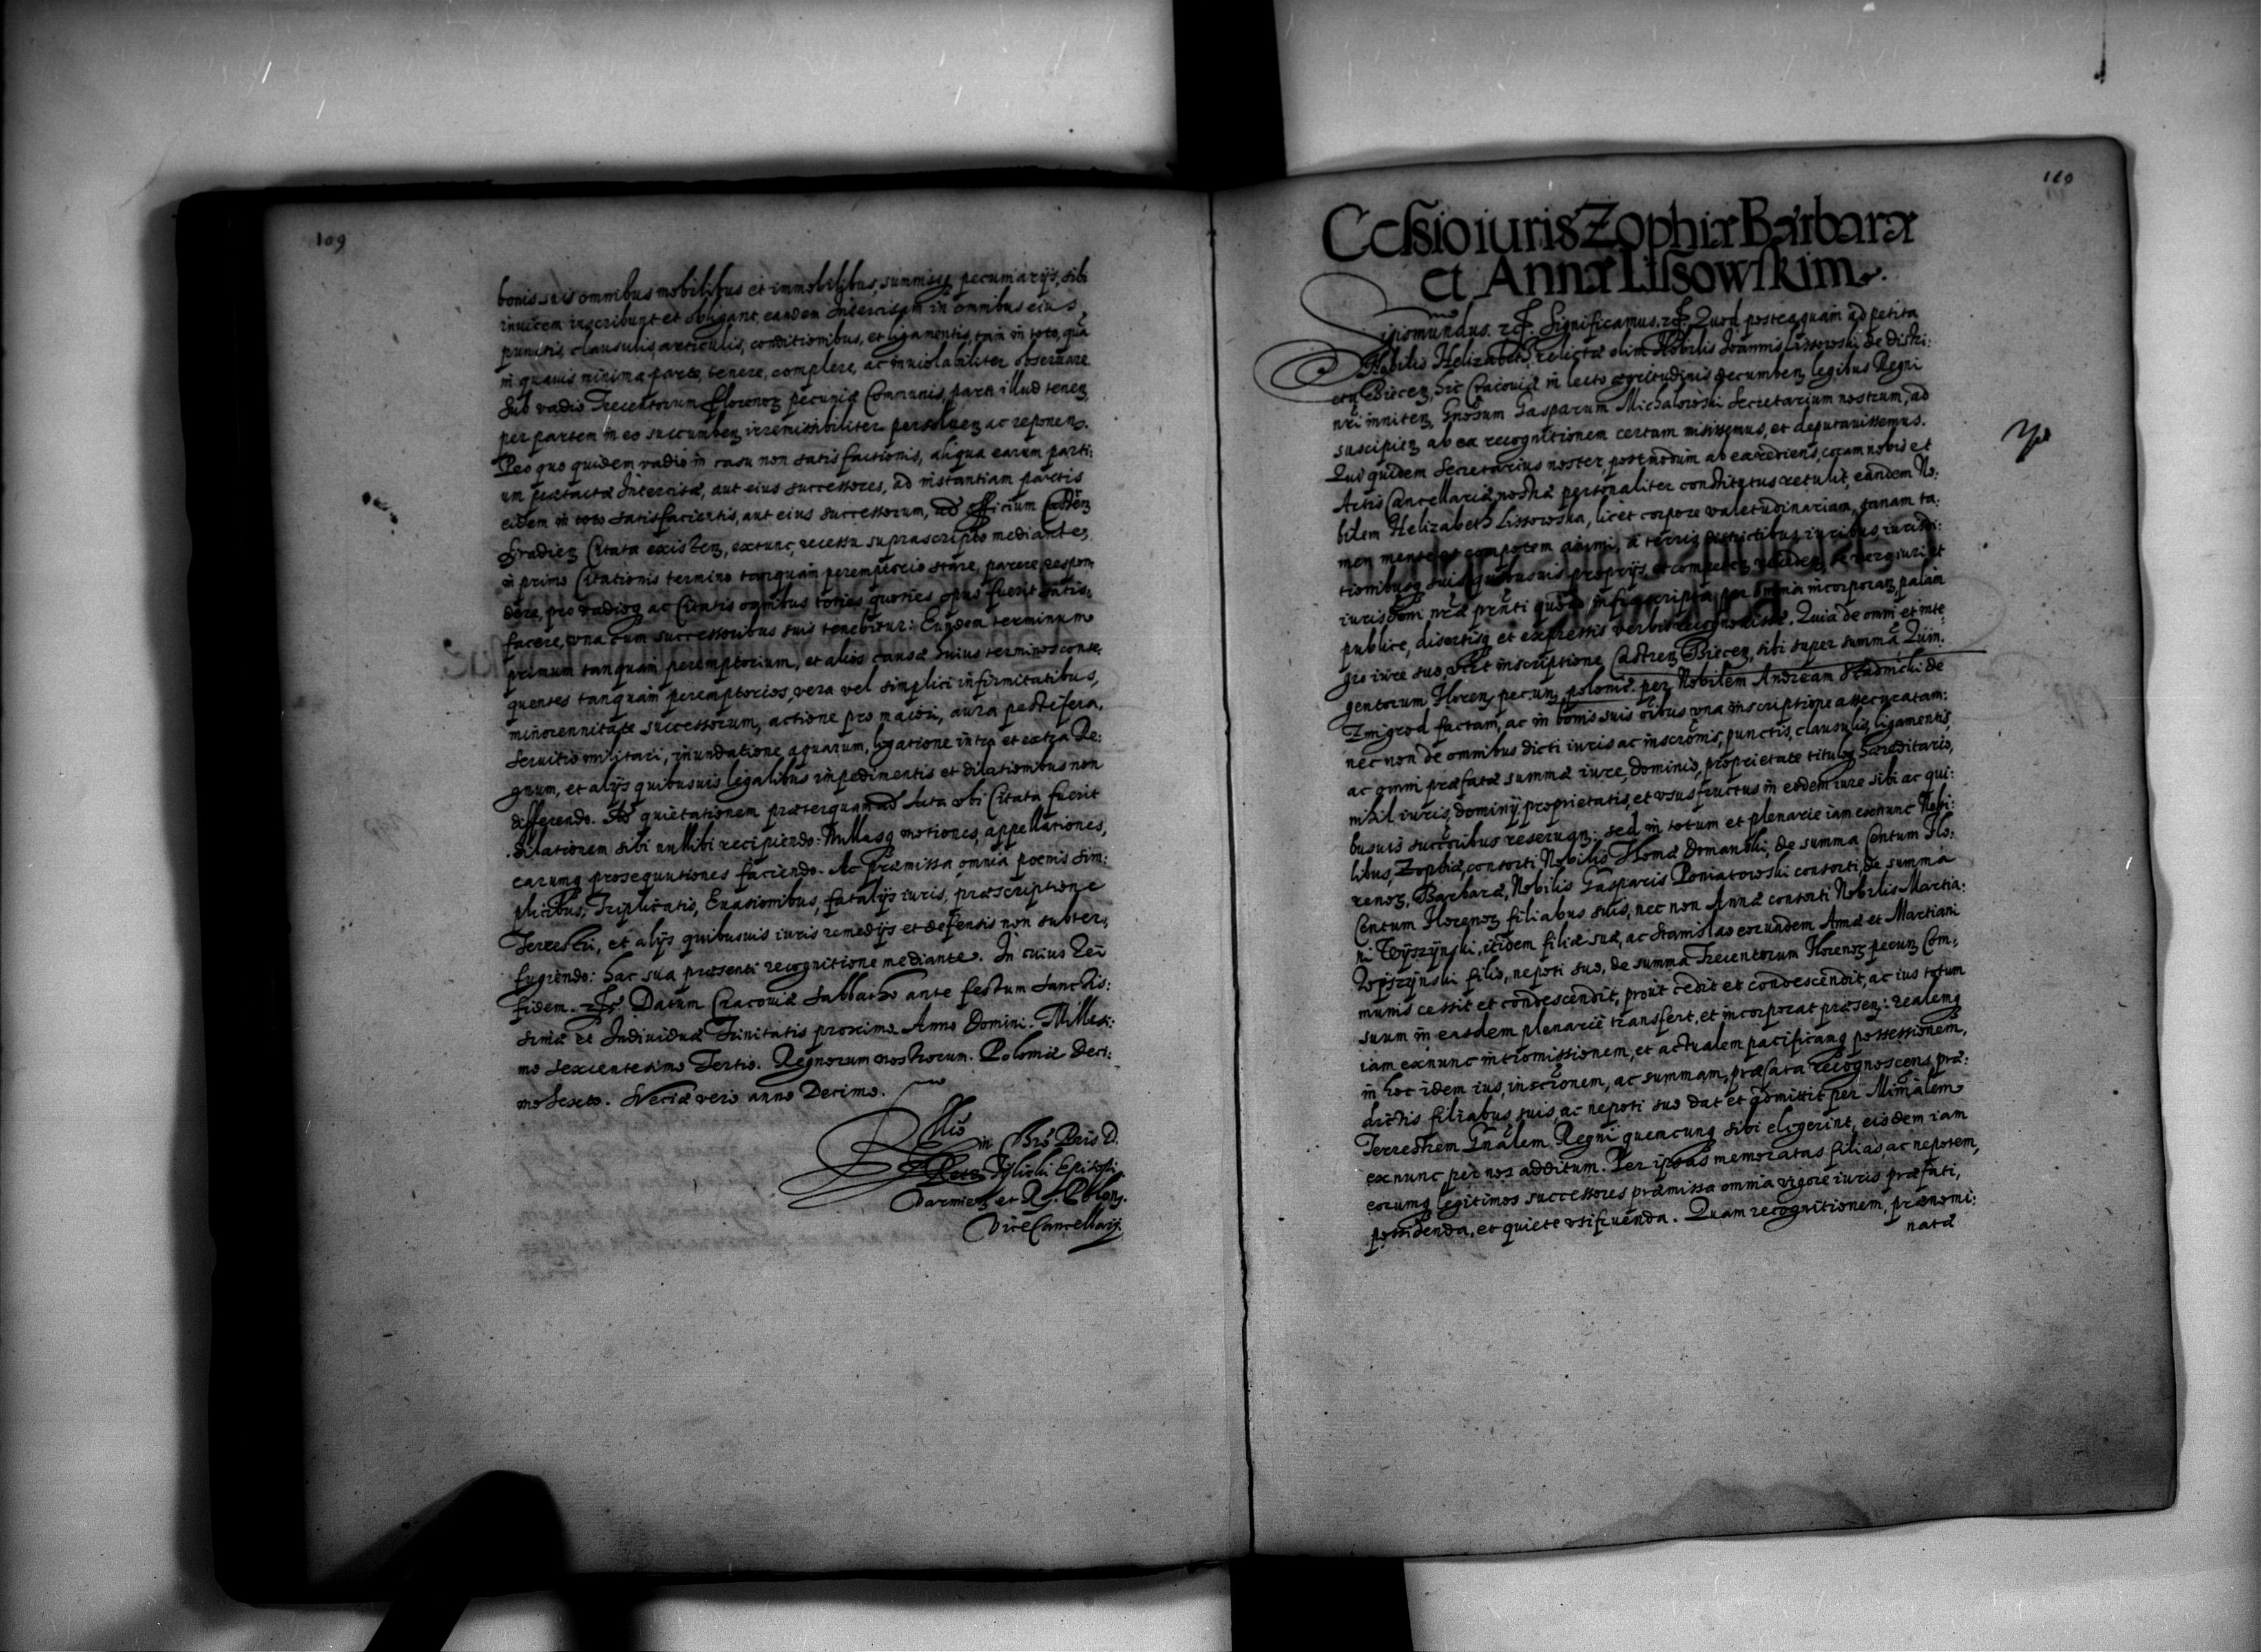 109
bonis suis omnibus mobilibus et immobilibus, summisq pecuniarijs, sibi
inuicem inscribunt et obligant, eandem Intercisam in omnibus eius
punctis, clausulis, articulis, conditionibus, et ligamentis, tam in toto, quã
in quauis minima parte, tenere, complere, ac inuiolabiliter obseruare
Sub vadio Trecentorum Florenoꝝ pecuniæ Communis, parti illud tenen̄
per partem in eo succumben̄ irremissibiliter persoluen̄ ac reponen̄.
Pro quo quidem vadio in casu non satisfactionis, aliqua earum parti:
um prætactæ Intercisæ, aut eius successores, ad instantiam partis
eidem in toto satisfacientis, aut eius successorum, ad officium Castren̄
Gradien̄ Citata existen̄, extunc, recessu suprascripto mediante,
in primo Citationis termino tanquam peremptorio stare, parere, respon
dere, pro vadioq ac Citatis omnibus toties quoties opus fuerit satis:
facere, vna cum successoribus suis tenebitur: Eundem terminum
primum tanquam peremptorium, et alios causæ huius terminos conse:
quentes tanquam peremptorios, vera vel simplici infirmitatibus,
minorennitate successorum, actione pro maiori, aura pestifera,
Seruitio militari, inundatione aquarum, legatione intra et extra Re:
gnum, et alijs quibusuis legalibus impedimentis et dilationibus non
differendo. Ad quietationem præterquam ad Acta vbi Citata fuerit
dilationem sibi nullibi recipiendo: Nullasq motiones, appellationes,
earumq prosequutiones faciendo. Ac præmissa omnia poenis sim:
plicibus, Triplicatis, Euasionibus, fatalijs iuris, præscriptione
Terrestri, et alijs quibusuis iuris remedijs et defensis non subter:
fugiendo: hac sua præsenti recognitione mediante. In cuius rei
fidem. etc. Datum Cracouiæ Sabbatho ante festum Sanctis:
simæ et Indiuiduæ Trinitatis proximo Anno Domini. Millesi:
mo Sexcentesimo Tertio. Regnorum nostrorum. Poloniæ Deci:
mo Sexto. Sueciæ vero anno Decimo.
in
Petri Tylicki Episcopi
Varmien̄ et R. Polon̄.
ViceCancellarij
110
Cessio iuris Zophiæ Barbaræ
et Annæ Lissowskim
Sigismundus. etc. Significamus. etc. Quod posteaquam ad petita
Nobilis Helizabeth, relictæ olim Nobilis Ioannis Lissowski de distri:
ctu Biecen̄, hic Cracouiæ in lecto ægritudinis decumben̄ legibus Regni
nr̃i inniten̄, Gnosum Gasparum Michalowski Secretarium nostrum, ad
suscipien̄ ab ea recognitionem certam misissemus, et deputauissemus.
Qui quidem Secretarius noster, postmodum ab ea rediens, coram nobis et
Actis Cancellariæ nostræ personaliter constitutus retulit, eandem No:
bilem Helizabeth Lissowska, licet corpore valetudinariam, sanam ta:
men mente et compotem animi, à terris districtibus iuribus, iurisdi:
tionibusq suis quibusuis proprijs, et competen̄ receden̄, se vero iuri et
iurisdoni nr̃æ pr̃nti quo ad infrascripta per omnia incorporan̄, palam
publice, disertisq et expressis verbis recognouisse. Quia de omni et inte
gro iure suo, vti inscriptione Castren̄ Biecen̄, sibi super summã Quin:
gentorum Floren̄ pecun̄ poloniæ. per Nobilem Andream Stadnicki de
Zmigrod factam, ac in bonis suis oĩbus vna inscriptione assecuratam:
nec non de omnibus dicti iuris ac inscrõnis, punctis, clausulis, ligamentis,
ac omni præfatæ summæ iure, dominio, proprietate tituloq hæreditario,
nihil iuris, dominij, proprietatis, et vsusfructus in eodem iure sibi ac qui:
busuis succõribus reseruan̄: sed in totum et plenarie iam exnunc Nobi:
libus, Zophiæ, consorti Nobilis Thomæ Domanski, de summa Centum Flo:
renoꝝ, Barbaræ, Nobilis Gasparis Poniatowski consorti, de summa
Centum Florenoꝝ filiabus suis, nec non Annæ consorti Nobilis Martia:
ni Woyszynski, itidem filiæ suæ, ac Stanislao eorundem Annæ et Martiani
Woyszynski filio, nepoti suo, de summa Trecentorum Florenoꝝ pecun̄ Com:
munis cessit et condescendit, prout cedit et condescendit, ac ius totum
suum in easdem plenariè transfert, et incorporat præsen̄: realemq
iam exnunc intromissionem, et actualem pacificamq possessionem,
in hoc idem ius, inscrõnem, ac summam, præfata recognoscens, præ:
dictis filiabus suis, ac nepoti suo dat et admittit per Min̄ialem
Terrestrem Gñalem Regni quemcunq sibi elegerint, eisdem iam
exnunc per nos additum. Per ipsas memoratas filias, ac nepotem,
eorumq legitimos successores præmissa omnia vigore iuris præfati,
possidenda, et quiete vtifruenda. Quam recognitionem, prænomi:
natæ